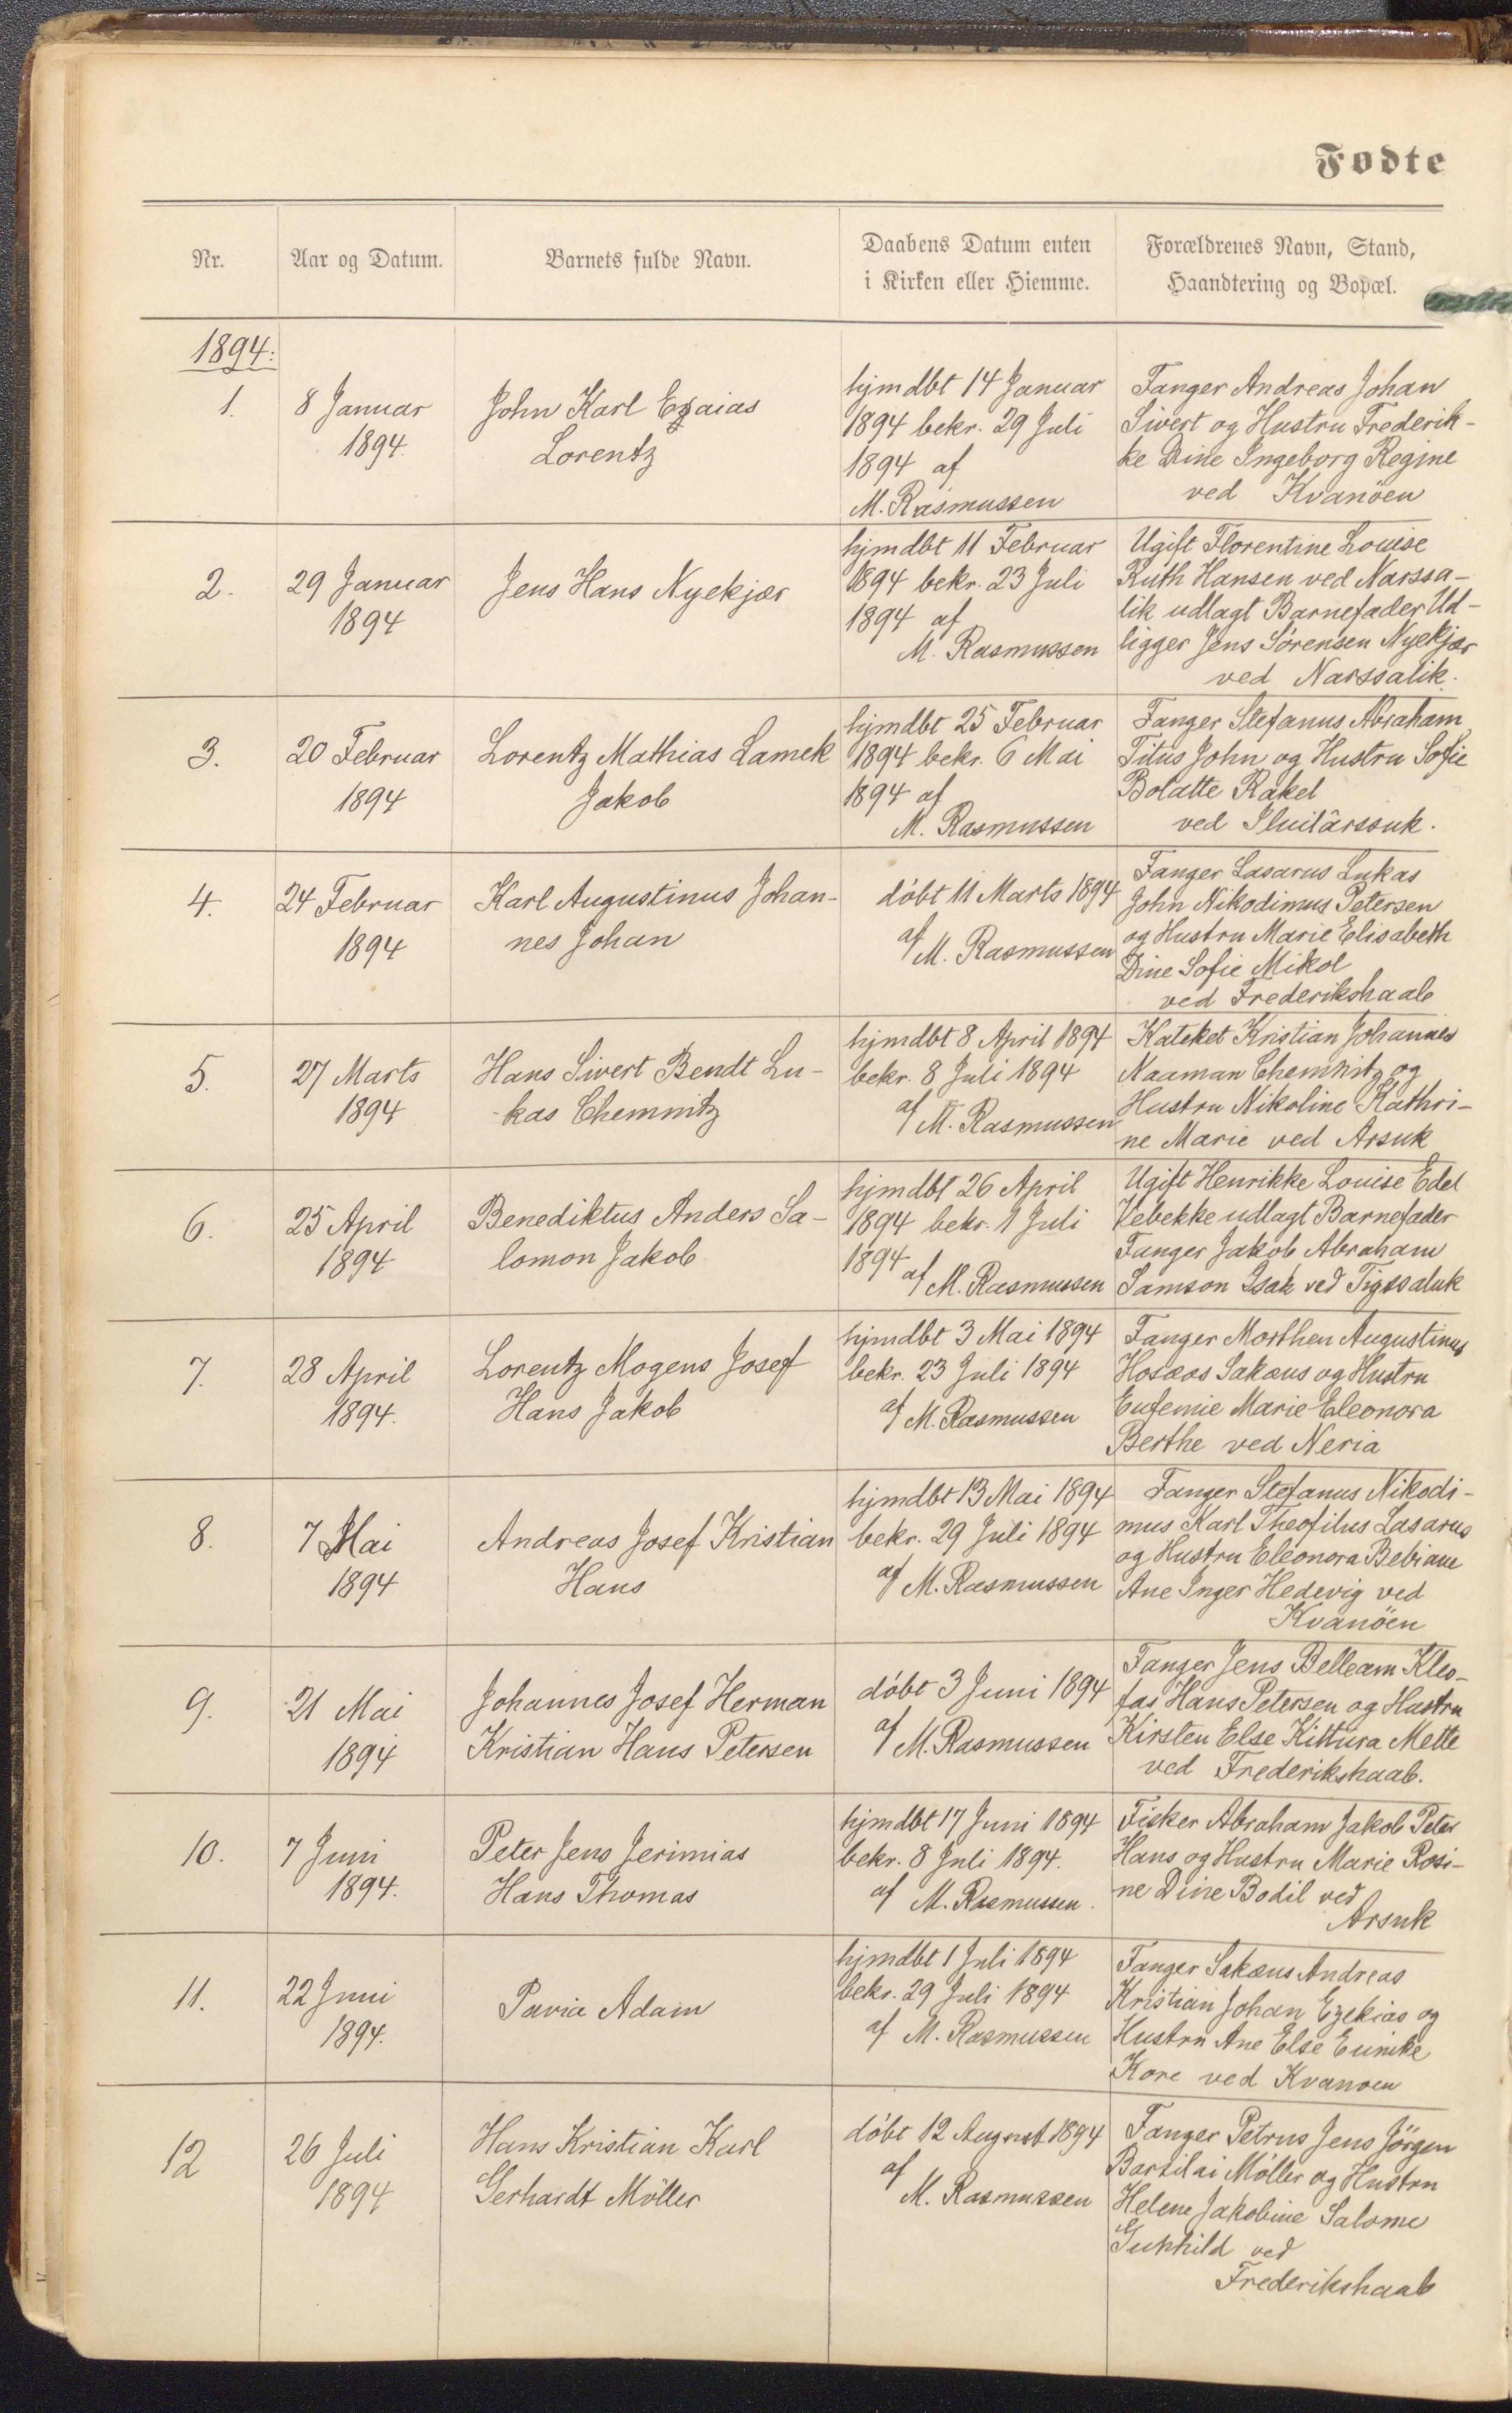 Fødte
Nr.
Aar og Datum.
Barnets fulde Navn.
Daabens Datum enten
i Kirken eller Hiemme.
Forældrenes Navn, Stand,
Haandtering og Bopæl.
1894:
1.
8 Januar
1894.
John Karl Ezaias
Lorentz
hjmdbt 14 Januar
1894 bekr. 29 Juli
1894 af
M. Rasmussen
Fanger Andreas Johan
Sivert og Hustru Frederik-
ke Dine Ingeborg Regine
ved Kvanöen
2.
29 Januar
1894
Jens Hans Nyekjær
hjmdbt 11 Februar
1894 bekr. 23 Juli
1894 af
M. Rasmussen
Ugift Florentine Louise
Ruth Hansen ved Narssa-
lik udlagt Barnefader Ud-
ligger Jens Sørensen Nyekjær
ved Narssalik.
3.
20 Februar
1894
Lorentz Mathias Lamek
Jakob
hjmdbt 25 Februar
1894 bekr. 6 Mai
1894 af
M. Rasmussen
Fanger Stefanus Abraham
Titus John og Hustru Sofie
Bolatte Rakel
ved Iluilârssuk.
4.
24 Februar
1894
Karl Augustinus Johan-
nes Johan
döbt 11 Marts 1894
af M. Rasmussen
Fanger Lasarus Lukas
John Nikodimus Petersen
og Hustru Marie Elisabeth
Dine Sofie Mikol
ved Frederikshaab
5.
27 Marts
1894
Hans Sivert Bendt Lu-
kas Chemnitz
hjmdbt 8 April 1894
bekr. 8 Juli 1894
af M. Rasmussen
Kateket Kristian Johannes
Naaman Chemnitz og
Hustru Nikoline Kathri-
ne Marie ved Arsuk
6.
25 April
1894
Benediktus Anders Sa-
lomon Jakob
hjmdbt 26 April
1894 bekr. 1 Juli
1894
af M. Rasmussen
Ugift Henrikke Louise Edel
Vebekke udlagt Barnefader
Fanger Jakob Abraham
Samson Isak ved Tigssaluk
7.
28 April
1894.
Lorentz Mogens Josef
Hans Jakob
hjmdbt 3 Mai 1894
bekr. 23 Juli 1894
af M. Rasmussen
Fanger Morthen Augustinus
Hosæas Sakæus og Hustru
Eufemie Marie Eleonora
Berthe ved Neria
8.
7 Mai
1894
Andreas Josef Kristian
Hans
hjmdbt 13 Mai 1894
bekr. 29 Juli 1894
af M. Rasmussen
Fanger Stefanus Nikodi-
mus Karl Theofilus Lasarus
og Hustru Eleonora Bebiane
Ane Inger Hedevig ved
Kvanöen
9.
21 Mai
1894
Johannes Josef Herman
Kristian Hans Petersen
döbt 3 Juni 1894
af M. Rasmussen
Fanger Jens Belleam Kleo-
fas Hans Petersen og Hustru
Kirsten Else Kittura Mette
ved Frederikshaab.
10.
7 Juni
1894.
Peter Jens Jerimias
Hans Thomas
hjmdbt 17 Juni 1894
bekr. 8 Juli 1894.
af M. Rasmussen.
Fisker Abraham Jakob Peter
Hans og Hustru Marie Rosi-
ne Dine Bodil ved
Arsuk
11.
22 Juni
1894.
Pavia Adam
hjmdbt 1 Juli 1894
bekr. 29 Juli 1894
af M. Rasmussen
Fanger Sakæus Andreas
Kristian Johan Ezekias og
Hustru Ane Else Eunike
Kore ved Kvanoen
12
26 Juli
1894
Hans Kristian Karl
Gerhardt Möller
döbt 12 August 1894
af
M. Rasmussen
Fanger Petrus Jens Jörgen
Barsilai Möller og Hustru
Helene Jakobine Salome
Gunhild ved
Frederikshaab